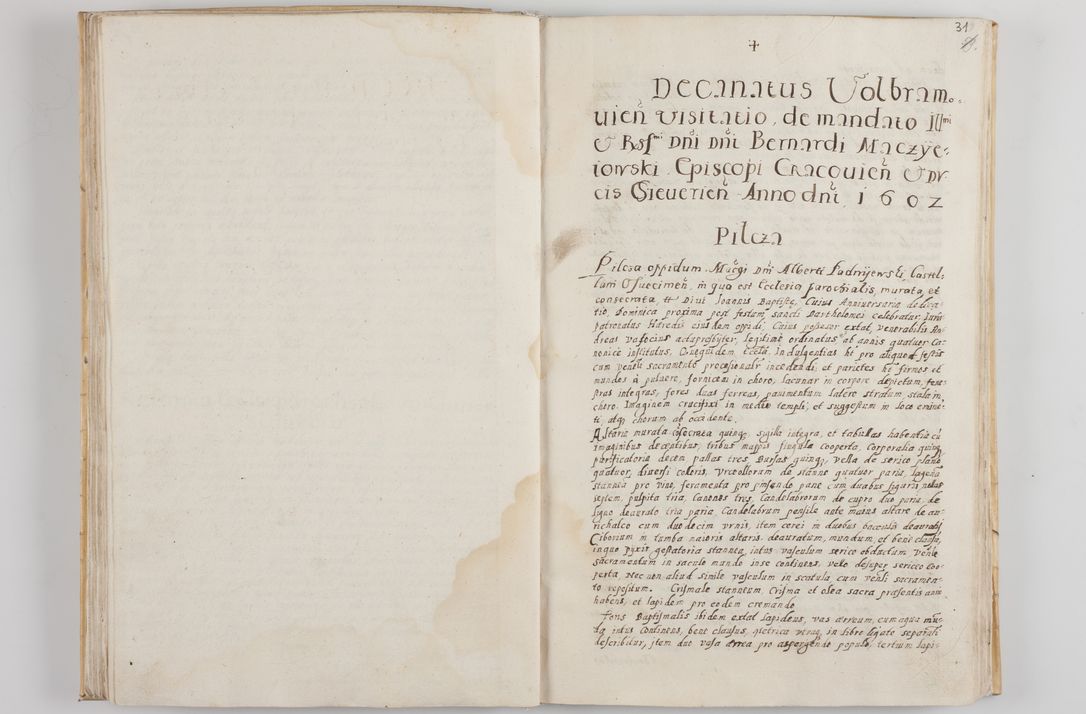 31
+
Decanatus Volbramo⸗
uien̄ visitatio, de mandato Illmi
& Rssmi Dn̄i Dn̄i Bernardi Maczye⸗
iowski Episcopi Cracouien̄ & Du⸗
cis Sieuerien̄ Anno dn̄i 1602
Pilcza
Pilcza oppidum Dn̄i Alberti Castel⸗
lani in qua est Ecclesia parochialis, murata, et
consecrata, tt Diui Joannis Baptistę, Cuius Anniuersaria dedica⸗
tio, Dominica proxima post festum, sancti Bartholomei celebratur, Juris
patronatus Hęredis eiusdem oppidi, Cuius poßeßor extat, venerabilis An⸗
dreas legitime ordinatus ab annis quatuor Ca⸗
nonice institutus, Indulgentias ht pro aliquot festis
cum sacramento proceßionalr incedendi, et parietes ht firmos et
mundos à puluere, fornicem in choro, lacunar in corpore depictum, fene⸗
stras integras, fores duas ferreas, pauimentum latere stratum, stala in
choro. Imaginem crucifixi in medio templi, et suggestum in loco emine⸗
ti, atq; chorum ab occidente.
Altaria murata quinq; sigilla integra, et tabullas habentia cū
imaginibus decentibus, tribus mappis singula cooperta, Corporalia quinq;
purificatoria decem, pallas tres, Bursas quinq;, vella de serico plano
quatuor, diuersi coloris, Vrceollorum de stanno quatuor paria, lagena
stannea pro vino, feramenta pro pinsendo pane cum duabus figuris
septem, pulpita tria, Canones tres, Candelabrorum de cupro duo paria, de
ligno deaurato tria paria, Candelabrum pensile ante maius altare de au⸗
richalco cum duodecim vrnis, item cerei in duobus bacculis deauratis
Ciborium in tumba maioris altaris deauratum, mundum, et bene clausū,
inque pyxis gestatoria stannea, intus vasculum serico obductum
sacramentum in sacculo mundo in se continens, velo desuper sericeo coo⸗
perta, Nec non aliud simile vasculum in scatula cum sacramen⸗
to repositum. Crismale stanneum, Crisma et olea sacra praesentis anni
habens, et lapidem pro eodem cremando.
Fons Baptismalis ibidem extat lapideus, vas ęreum, cum aqua mū⸗
da intus continens, bene clausus, in libro ligato separati
describitur, item duo vasa ærea pro aspergendo populo, tertium lapi⸗